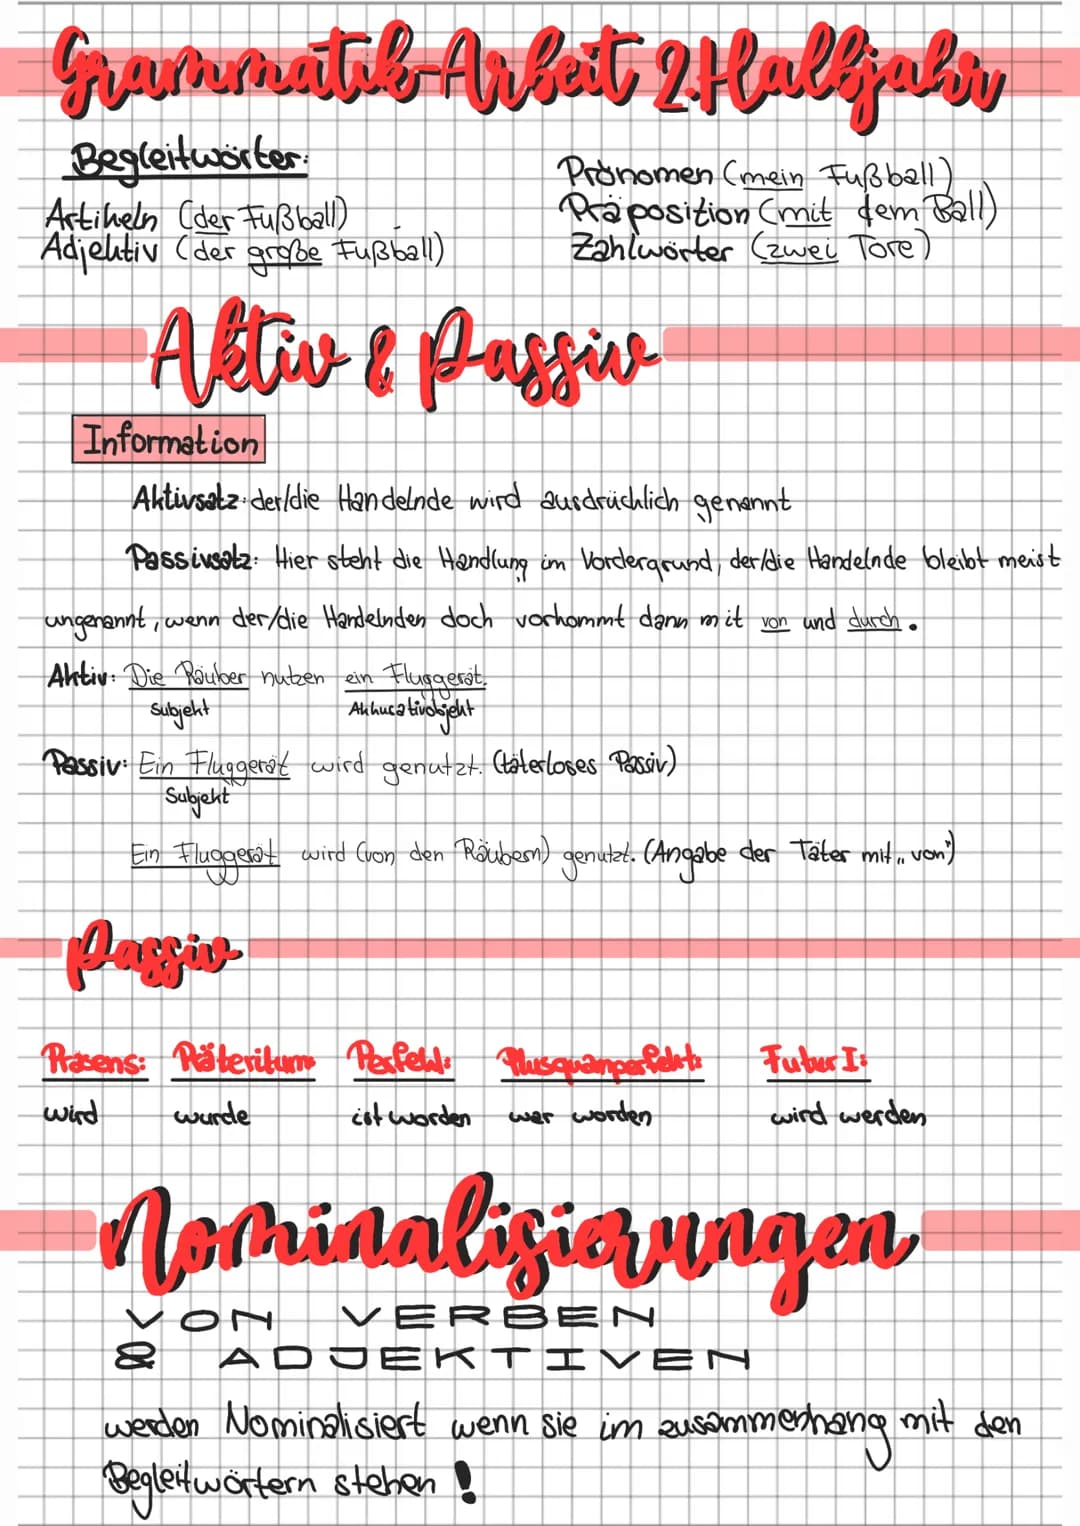 Grammatik-Arbeit 2.Halbjahr
Begleitwörter:
Artikeln (der Fußball)
Adjektiv (der große Fußball)
Pronomen (mein Fußball)
Präposition (mit dem Ball)
Zahlwörter (zwei Tore)
Aktiv & Passiv
Information
Aktivsatz: der/die Handelnde wird ausdrücklich genannt
Passivsatz: Hier steht die Handlung im Vordergrund, der/die Handelnde bleibt meist
ungenannt, wenn der/die Handelnden doch vorkommt dann mit von und durch.
Aktiv: Die Räuber nutzen ein Fluggerät.
Subjekt Akkusativobjekt
Passiv: Ein Fluggerät wird genutzt. (täterloses Passiv)
Subjekt
Ein Fluggerät wird (von den Räubern) genutzt. (Angabe der Täter mit „von")
Passiv
Präsens: Präteritum: Perfekt: Plusquamperfekt: Futur I:
wird wurde ist worden war worden wird werden
Nominalisierungen
VON VERBEN
& ADJEKTIVEN
werden Nominalisiert wenn sie im zusammenhang mit den
Begleitwörtern stehen!